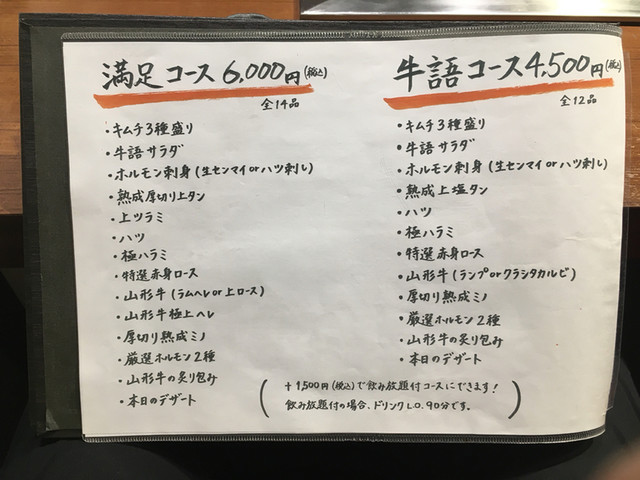 満足コース 6,000円(税込)
全14品
・キムチ3種盛り
・牛語サラダ
・ホルモン刺身(生センマイorハツ刺し)
・熟成厚切り上タン
・上ツラミ
・ハツ
・極ハラミ
・特選赤身ロース
・山形牛(ラムヘレor上ロース)
・山形牛極上ヘレ
・厚切り熟成ミノ
・厳選ホルモン2種
・山形牛の炙り包み
・本日のデザート
牛語コース 4,500円(税込)
全12品
・キムチ3種盛り
・牛語サラダ
・ホルモン刺身(生センマイorハツ刺し)
・熟成上塩タン
・ハツ
・極ハラミ
・特選赤身ロース
・山形牛(ランプorクラシタカルビ)
・厚切り熟成ミノ
・厳選ホルモン2種
・山形牛の炙り包み
・本日のデザート
(+1,500円(税込)で飲み放題付コースにできます!
飲み放題付の場合、ドリンクL.O.90分です。)